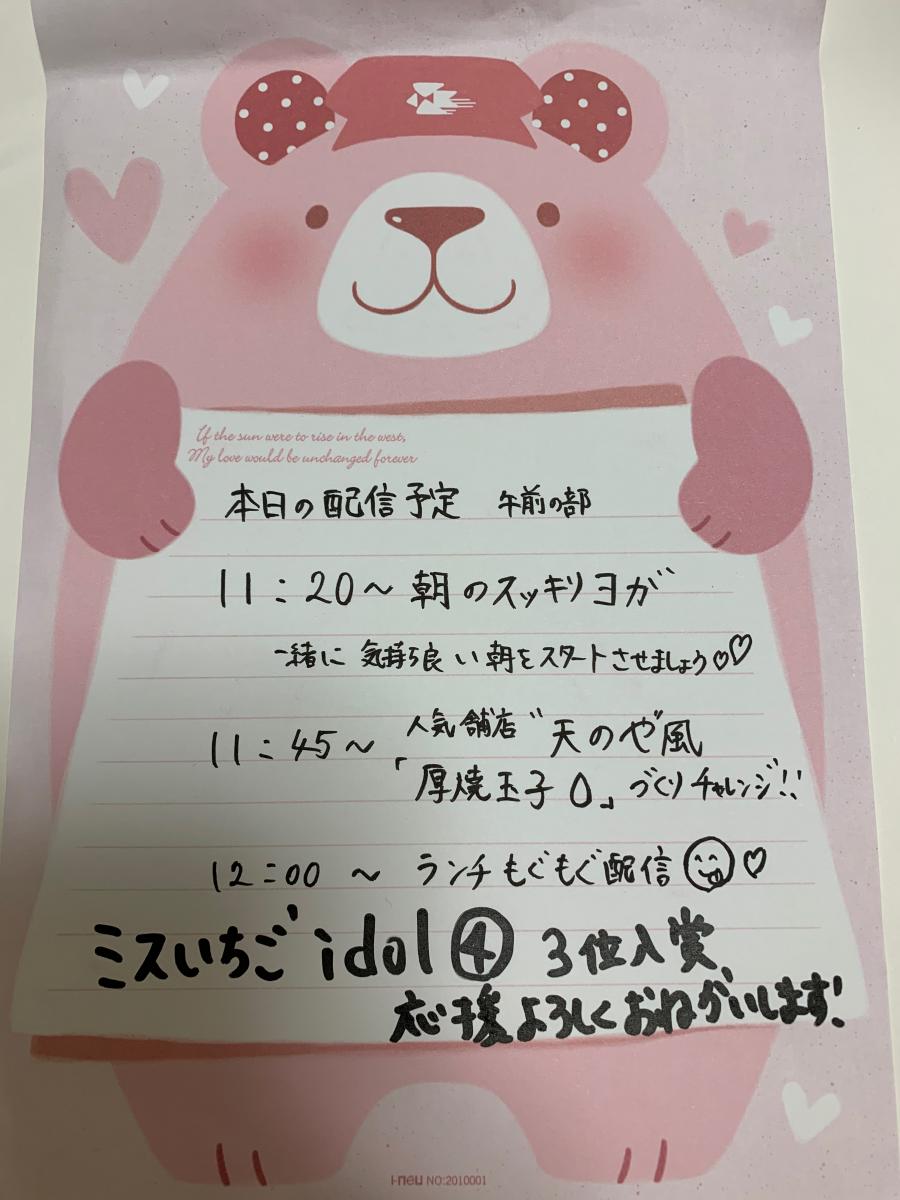 If the sun were to rise in the west,
My love would be unchanged forever
本日の配信予定 午前の部
11:20〜朝のスッキリヨガ
一緒に気持ち良い朝をスタートさせましょう♡♡
11:45〜 人気舗店"天のや"風
「厚焼玉子()」づくりチャレンジ!!
12:00 〜 ランチもぐもぐ配信♡
ミスいちご idol④ 3位入賞
応援よろしくおねがいします!
i-neu NO:2010001